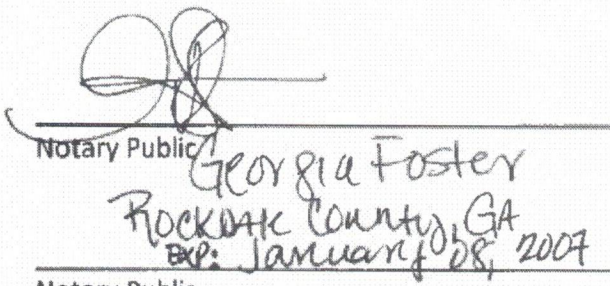 Notary Public
Georgia Foster
Rockdale County, GA
EXP: January 08, 2007
Notary Public